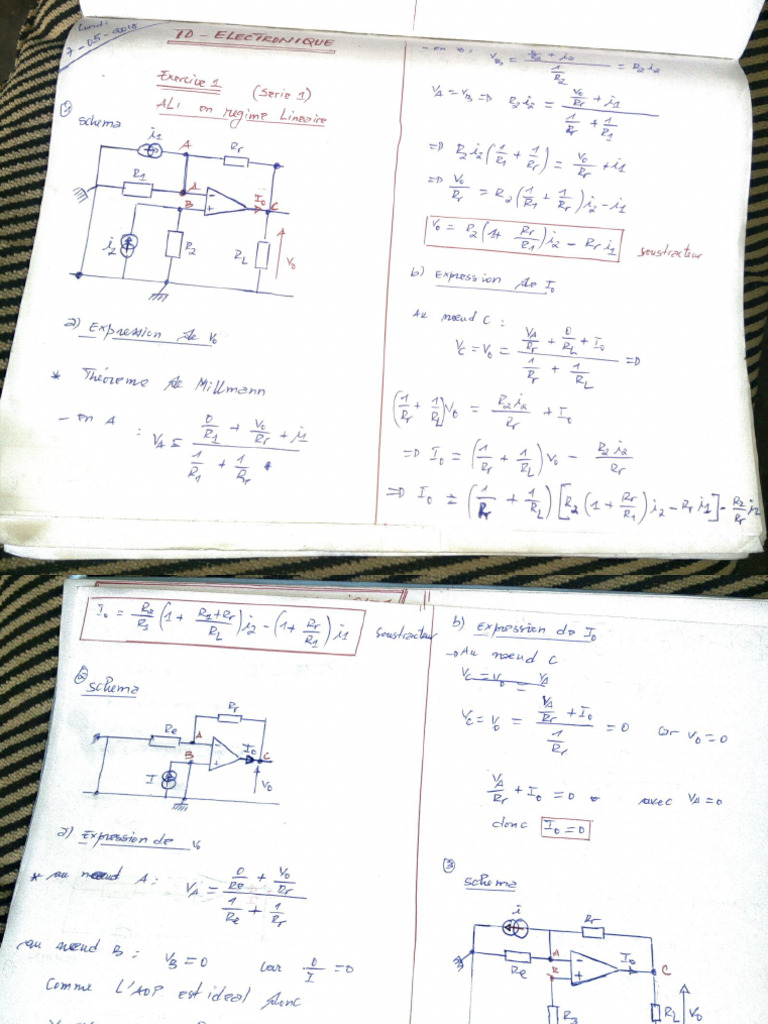 Lundi
7-05-2018
TD - ELECTRONIQUE
Exercice 1 (Serie 1)
ALI en regime Lineaire
1 schema
i1
A
Rr
R1
A
B
I0
C
i2
R2
RL
V0
a) Expression de V0
* Théoreme de Millmann
- en A : VA = (0/R1 + V0/Rr + i1) / (1/R1 + 1/Rr)
- en B: VB = (0/R2 + i2) / (1/R2) = R2 i2
VA = VB => R2 i2 = (V0/Rr + i1) / (1/Rr + 1/R1)
=> R2 i2 (1/R1 + 1/Rr) = V0/Rr + i1
=> V0/Rr = R2 (1/R1 + 1/Rr) i2 - i1
V0 = R2 (1 + Rr/R1) i2 - Rr i1 soustracteur
b) Expression de I0
Au nœud C :
VC = V0 = (VA/Rr + 0/RL + I0) / (1/Rr + 1/RL) =>
(1/Rr + 1/RL) V0 = R2 i2/Rr + I0
=> I0 = (1/Rr + 1/RL) V0 - R2 i2/Rr
=> I0 = (1/Rr + 1/RL) [R2 (1 + Rr/R1) i2 - Rr i1] - R2/Rr i2
I0 = R2/R1 (1 + (R1+Rr)/RL) i2 - (1 + Rr/R1) i1 soustracteur
2 schema
Rr
Re
A
B
I0
C
I
V0
a) Expression de V0
* au nœud A : VA = (0/Re + V0/Rr) / (1/Re + 1/Rr)
au nœud B : VB = 0 car 0/I = 0
Comme L'AOP est ideal donc
b) Expression de I0
-> Au nœud C
VC = V0 = VA
VC = V0 = (VA/Rr + I0) / (1/Rr) = 0 car V0 = 0
VA/Rr + I0 = 0 avec VA = 0
donc I0 = 0
3 schema
i
Rr
Re
A
B
I0
C
RL
V0